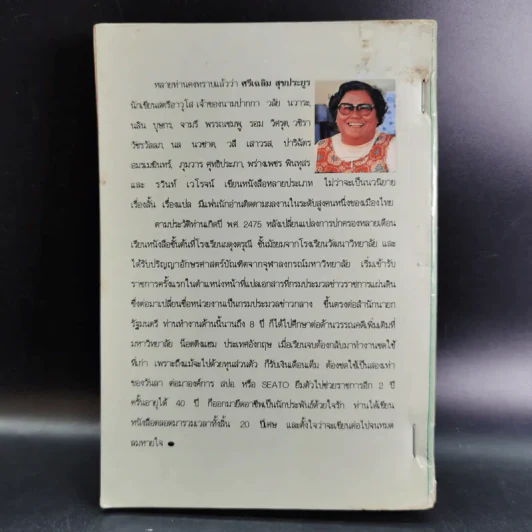 หลายท่านคงทราบแล้วว่า ศรีเฉลิม สุขประยูร
นักเขียนสตรีอาวุโส เจ้าของนามปากกา วลัย นวาระ,
นลิน บุษกร, จามรี พรรณชมพู, รอม วิศรุต, วชิรา
วัชรวัลลภ, นล นวชาต, วลี เสาวรส, ปาริฉัตร
อมรเมฆินทร์, ภุมวาร ศุทธิประภา, พร่างเพชร พิมทุสร
และ รวินท์ เวโรจน์ เขียนหนังสือหลายประเภท ไม่ว่าจะเป็นนวนิยาย
เรื่องสั้น เรื่องแปล มีแฟนนักอ่านติดตามผลงานในระดับสูงคนหนึ่งของเมืองไทย
ตามประวัติท่านเกิดปี พ.ศ. 2475 หลังเปลี่ยนแปลงการปกครองหลายเดือน
เรียนหนังสือชั้นต้นที่โรงเรียนผดุงดรุณี ชั้นมัธยมจากโรงเรียนวัฒนาวิทยาลัย และ
ได้รับปริญญาอักษรศาสตร์บัณฑิตจากจุฬาลงกรณ์มหาวิทยาลัย เริ่มเข้ารับ
ราชการครั้งแรกในตำแหน่งหน้าที่แปลเอกสารที่กรมประมวลข่าวราชการแผ่นดิน
ซึ่งต่อมาเปลี่ยนชื่อหน่วยงานเป็นกรมประมวลข่าวกลาง ขึ้นตรงต่อสำนักนายก
รัฐมนตรี ท่านทำงานด้านนี้นานถึง 8 ปี ก็ได้ไปศึกษาต่อด้านวรรณคดีเพิ่มเติมที่
มหาวิทยาลัย น็อตติงแฮม ประเทศอังกฤษ เมื่อเรียนจบต้องกลับมาทำงานชดใช้
ที่เก่า เพราะถึงแม้จะไปด้วยทุนส่วนตัว ก็รับเงินเดือนเต็ม ต้องชดใช้เป็นสองเท่า
ของวันลา ต่อมาองค์การ สปอ. หรือ SEATO ยืมตัวไปช่วยราชการอีก 2 ปี
ครั้นอายุได้ 40 ปี ก็ออกมายึดอาชีพเป็นนักประพันธ์ด้วยใจรัก ท่านได้เขียน
หนังสือตลอดมารวมเวลาทั้งสิ้น 20 ปีเศษ และตั้งใจว่าจะเขียนต่อไปจนหมด
ลมหายใจ